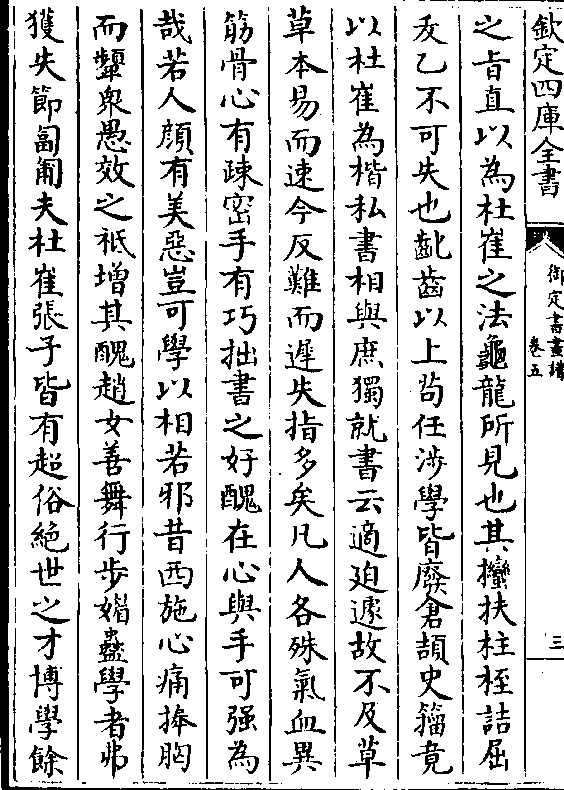 欽定四庫全書
御定書畫譜
卷五
三
之旨直以為杜崔之法龜龍所見也其㩻扶柱桎詰屈
犮乙不可失也齔齒以上苟任涉學皆廢倉頡史籀竟
以杜崔為楷私書相與庶獨就書云適迫遽故不及草
草本易而速今反難而遲失指多矣凡人各殊氣血異
筋骨心有疎密手有巧拙書之好醜在心與手可强為
哉若人顔有美惡豈可學以相若邪昔西施心痛捧胸
而顰衆愚效之祗增其醜趙女善舞行步媚蠱學者弗
獲失節匍匐夫杜崔張子皆有超俗絶世之才博學餘